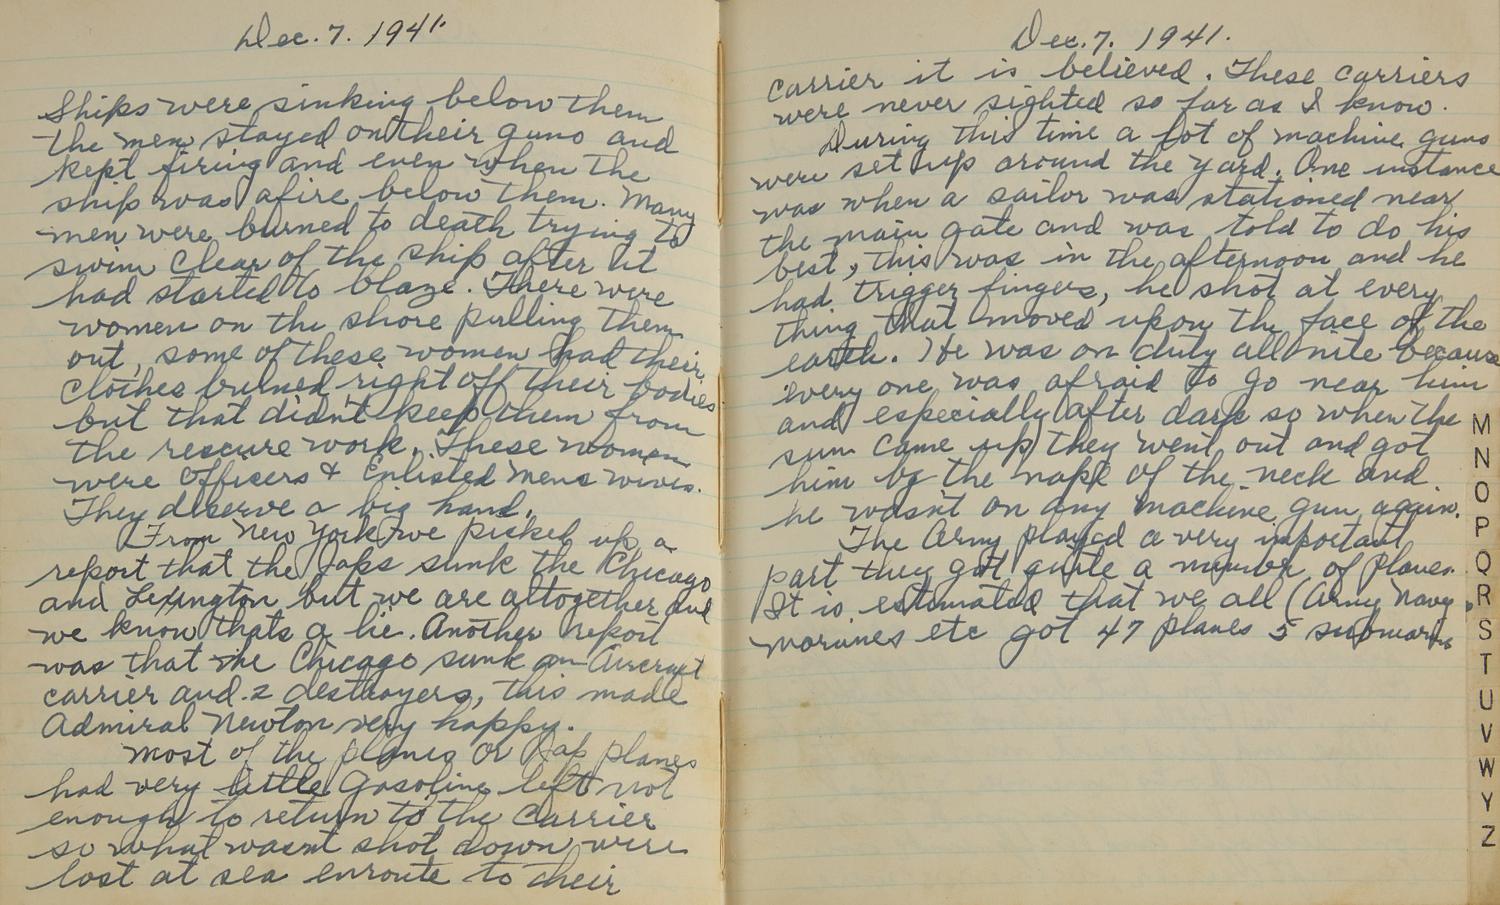 Dec. 7. 1941.
Ships were sinking below them
the men stayed on their guns and
kept firing and even when the
ship was afire below them. Many
men were burned to death trying to
swim clear of the ship after it
had started to blaze. There were
women on the shore pulling them
out, some of these women had their
clothes burned right off their bodies
but that didn't keep them from
the rescure work. These women
were Officers & Enlisted Mens wives.
They deserve a big hand.
From New York we picked up a
report that the Japs sunk the Chicago
and Lexington but we are altogether and
we know thats a lie. Another report
was that the Chicago sunk an Aircraft
carrier and 2 destroyers, this made
Admiral Newton very happy.
Most of the planes or Jap planes
had very little gasoline left not
enough to return to the Carrier
so what wasnt shot down were
lost at sea enroute to their
Dec. 7. 1941.
carrier it is believed. These carriers
were never sighted so far as I know.
During this time a lot of machine guns
were set up around the yard. One instance
was when a sailor was stationed near
the main gate and was told to do his
best, this was in the afternoon and he
had trigger fingers, he shot at every
thing that moved upon the face of the
earth. He was on duty all nite because
every one was afraid to go near him
and especially after dark so when the
sun came up they went out and got
him by the nape of the neck and
he wasn't on any machine gun again.
The Army played a very important
part they got quite a number of planes.
It is estimated that we all (Army Navy
marines etc got 47 planes 5 submarines
M
N
O
P
Q
R
S
T
U
V
W
Y
Z